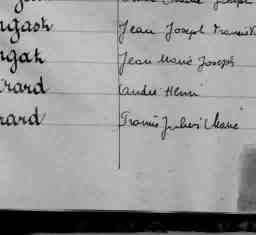 ngash Jean Joseph
ngak Jean Marie Joseph
irard André Henri
rard Francis Julien Marie